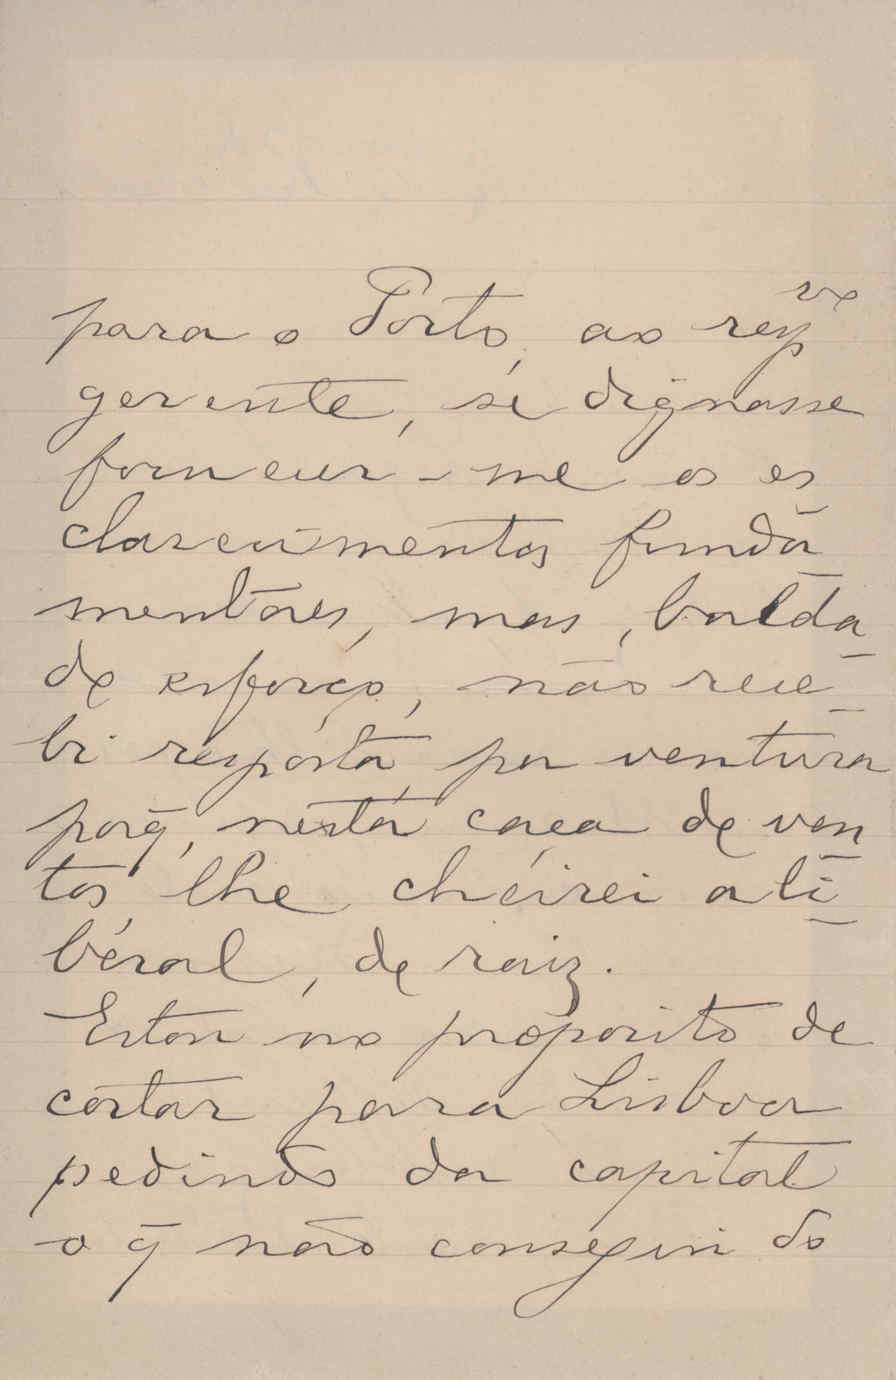 para o Porto, ao resp.vo
gerente, se dignasse
fornecer-me os es
clarecimentos funda
mentaes, mas, balda-
do esforço, não rece-
bi resposta por ventura
porq̃, nesta casa de ven
tos lhe cheirei a li-
beral, de raiz.
Estou no proposito de
cartar para Lisboa
pedindo da capital
o q̃ não consegui do